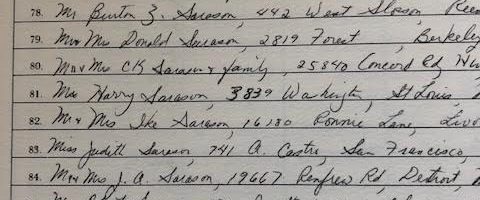 78. Mr Burton Z. Sarason, 442 West Sloson, Ree
79. Mr & Mrs Donald Sarason, 2819 Forest, Berkely
80. Mr & Mrs CK Sarason & family, 25840 Concord Rd, Hu
81. Mrs Harry Sarason, 3839 Washington, St Louis,
82. Mr & Mrs Ike Sarason, 16180 Ronnie Lane, Livo
83. Miss Judith Sarason 741 A. Castro, San Francisco,
84. Mr & Mrs J. A. Sarason, 19667 Renfrew Rd, Detroit,